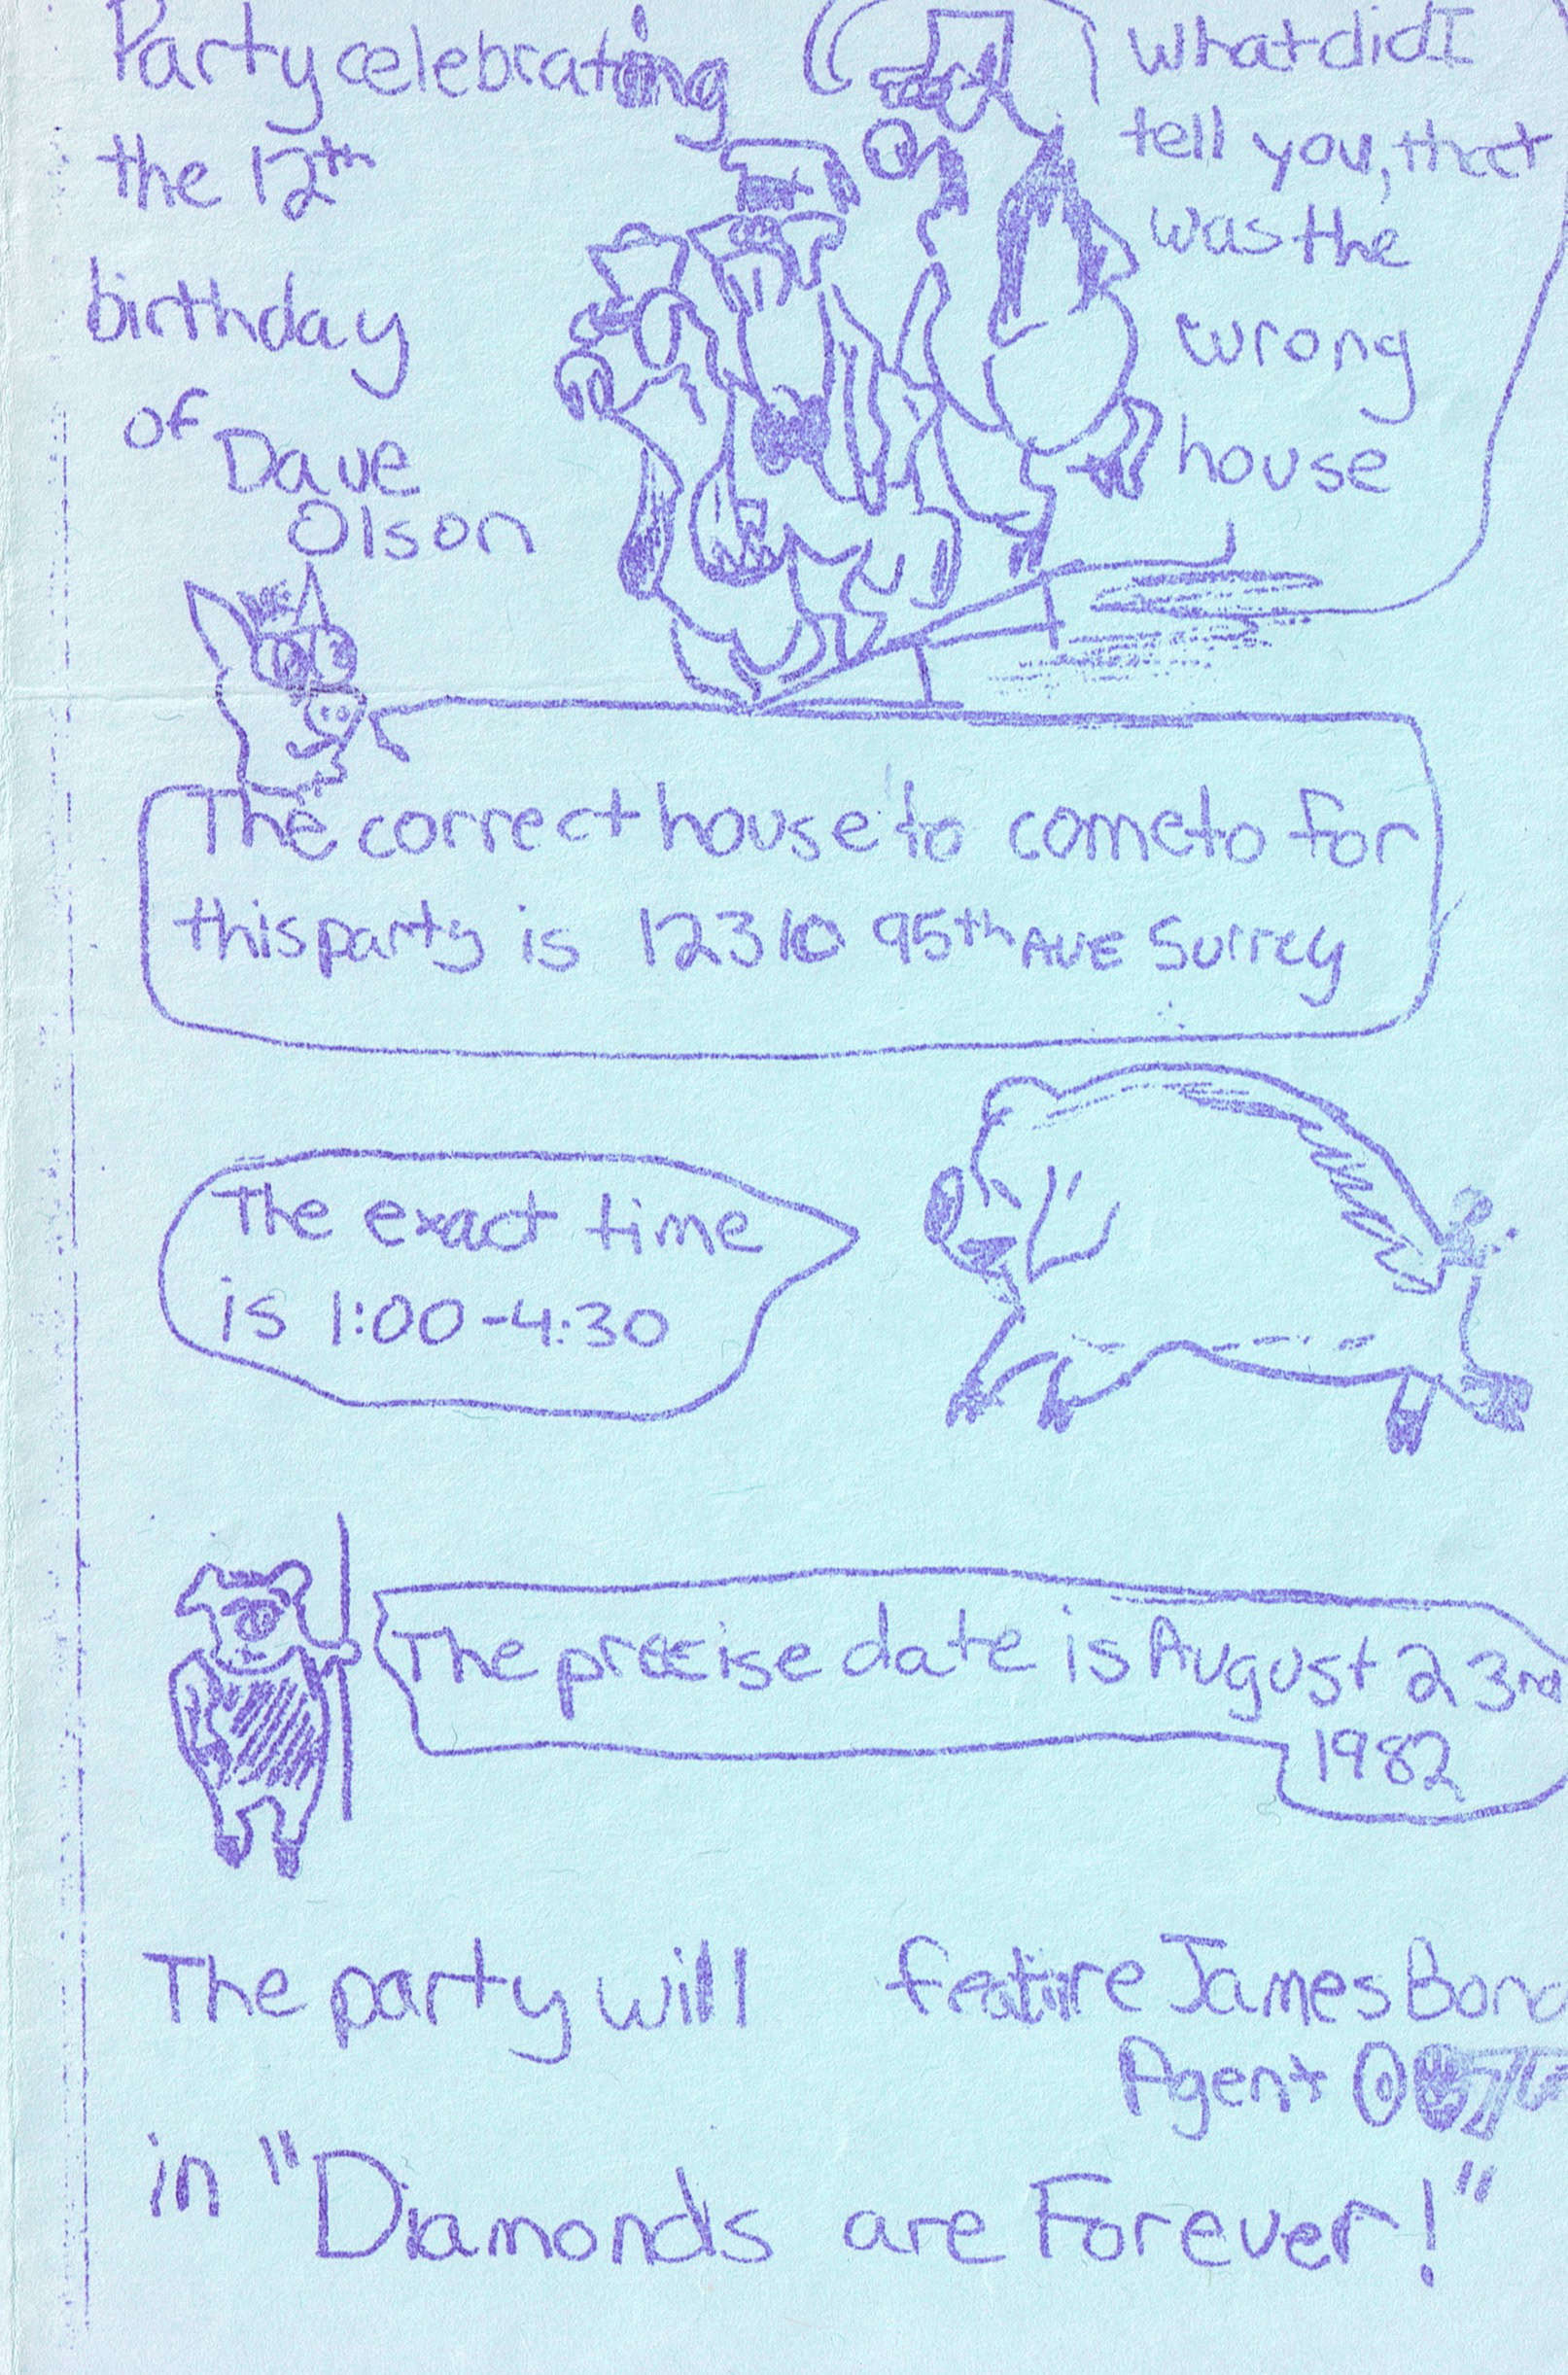 Party celebrating
the 12th
birthday
of Dave
Olson
What did I
tell you, that
was the
wrong
house
The correct house to come to for
this party is 12310 95th AVE Surrey
The exact time
is 1:00-4:30
The precise date is August 23rd
1982
The party will feature James Bond
Agent 007
in "Diamonds are Forever!"